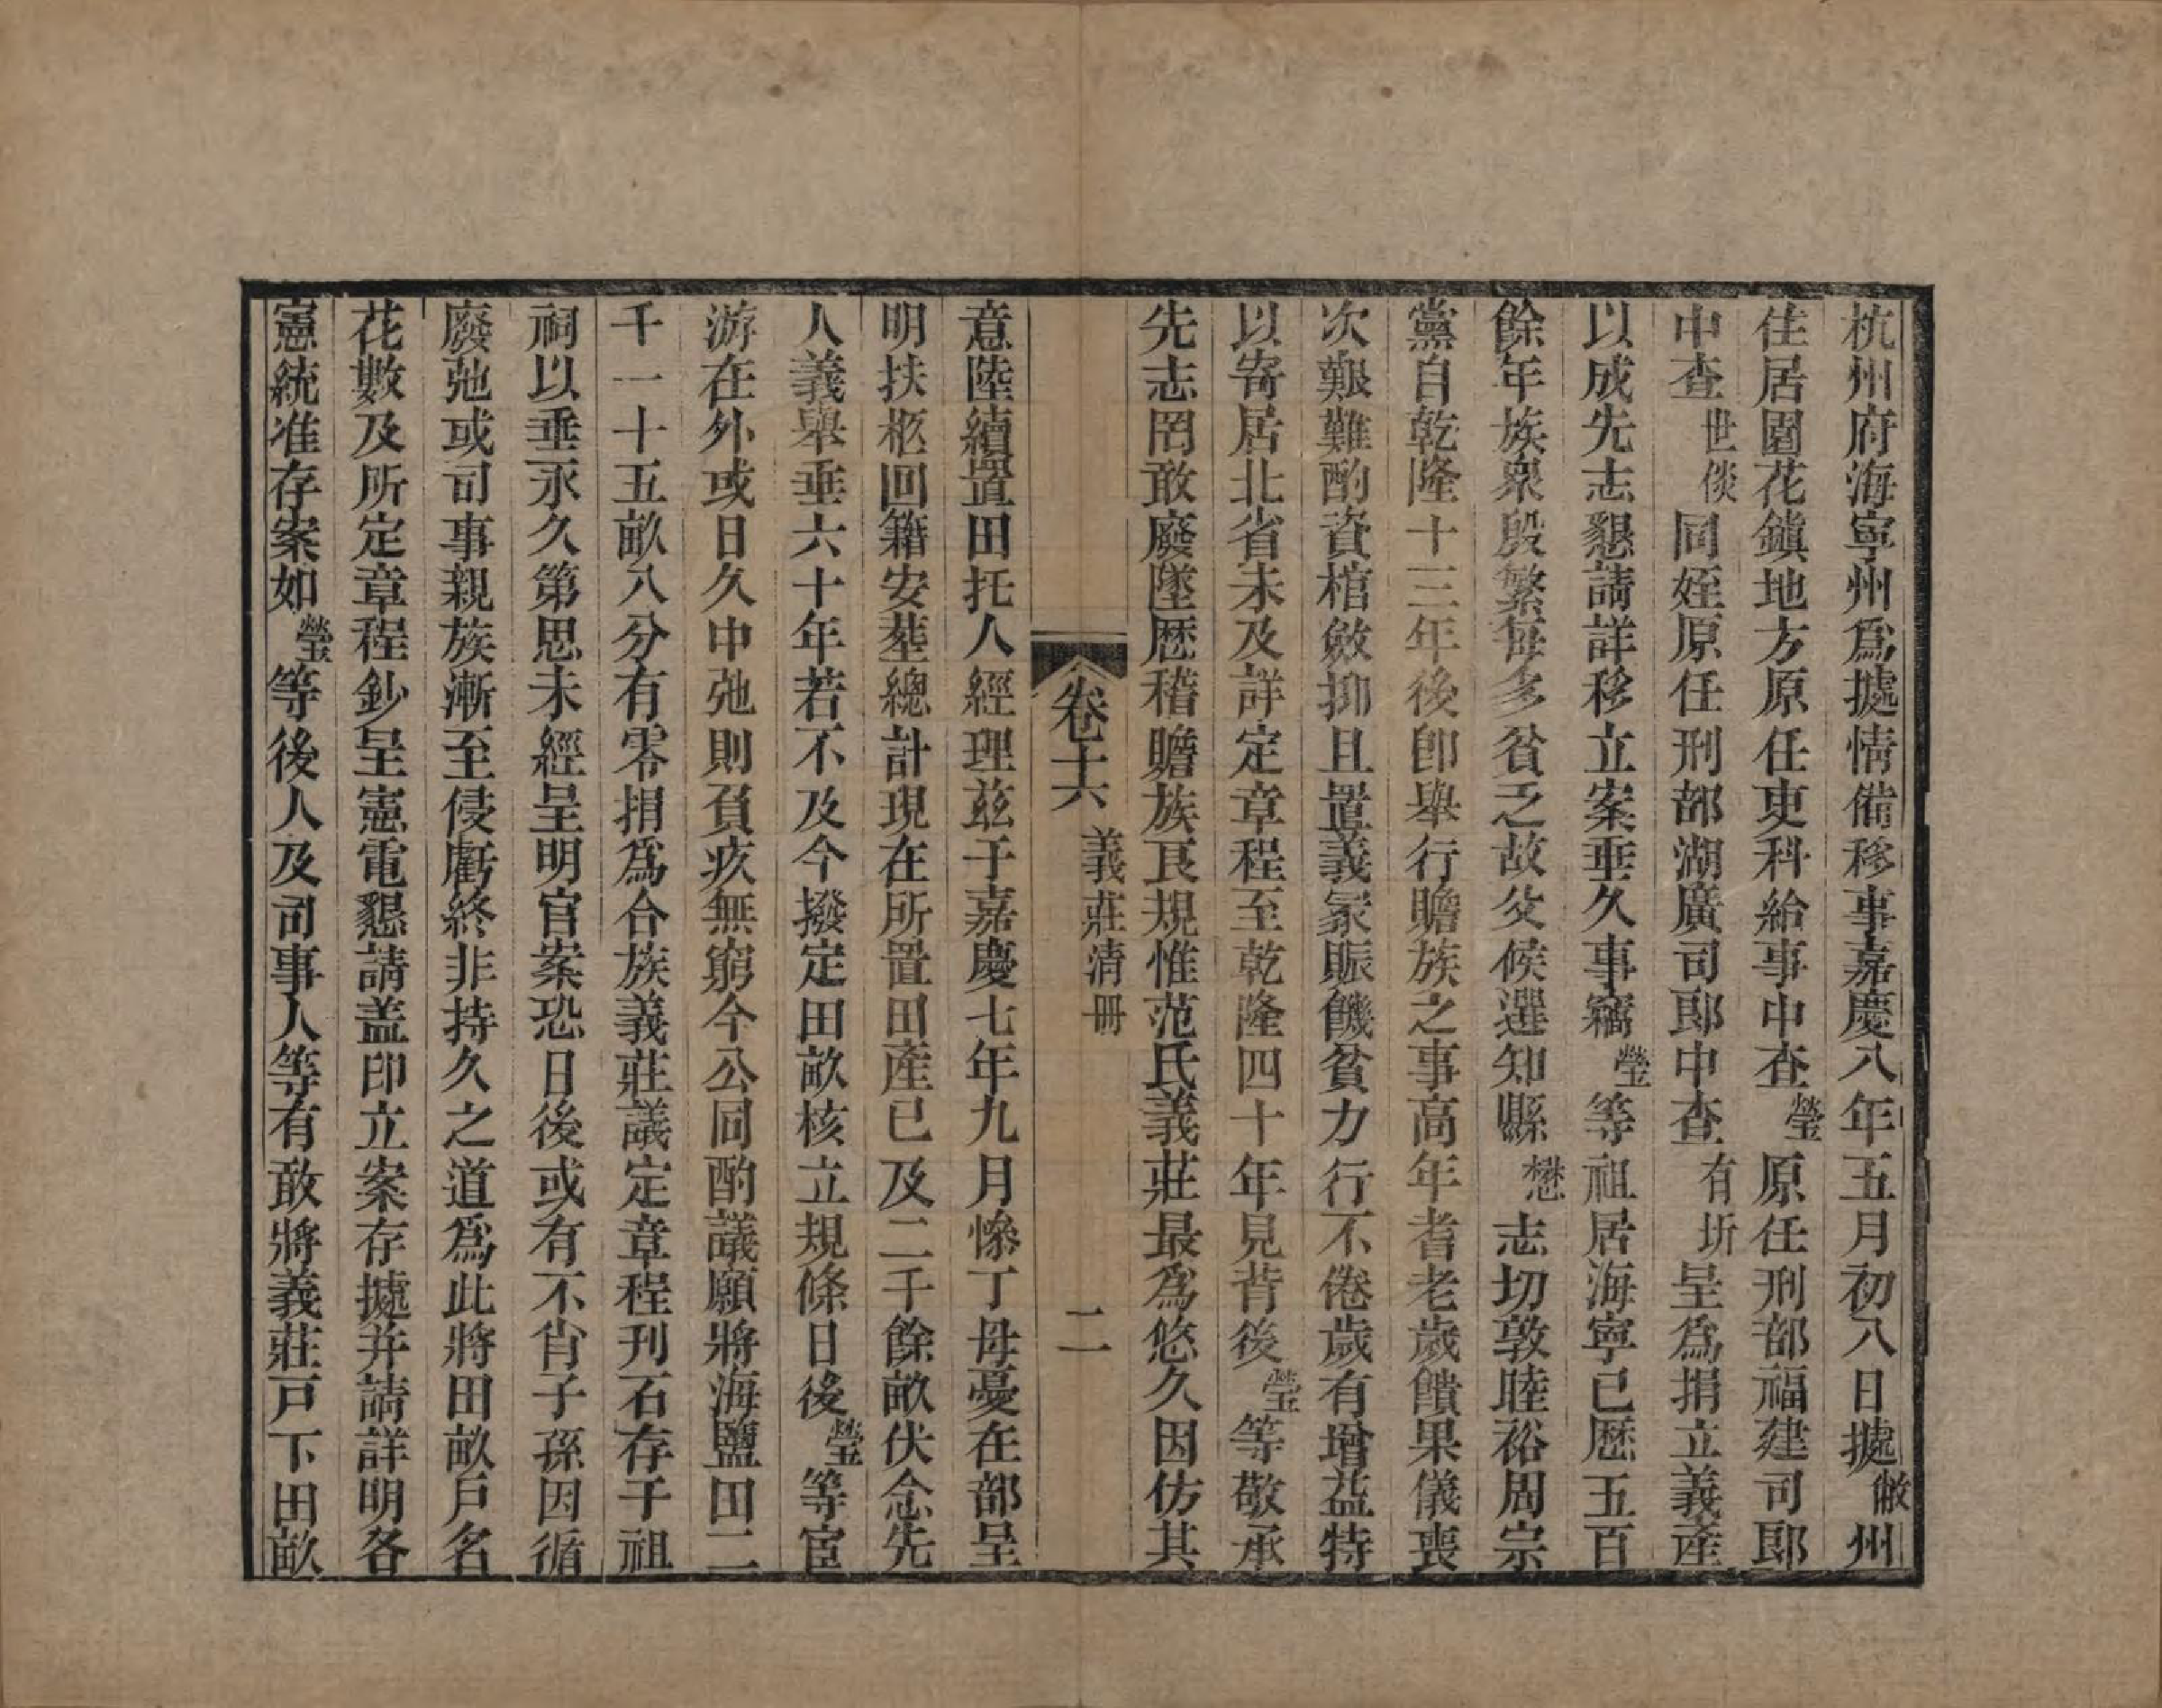 杭州府海寧州爲據情備移事嘉慶八年五月初八日據敝州
住居園花鎭地方原任吏科給事中查瑩原任刑部福建司郞
中查世倓同姪原任刑部湖廣司郞中查有圻呈爲捐立義產
以成先志懇請詳移立案垂久事竊瑩等祖居海寧已歷五百
餘年族衆殷繁每多貧乏故父候選知縣懋志切敦睦裕周宗
黨自乾隆十三年後卽舉行贍族之事高年耆老歲饋果儀喪
次艱難酌資棺斂抑且置義冢賑饑貧力行不倦歲有增益特
以寄居北省未及詳定章程至乾隆四十年見背後瑩等敬承
先志罔敢廢墜歷稽贍族良規惟范氏義莊最爲悠久因仿其
卷十六　義莊清冊　二
意陸續置田托人經理茲于嘉慶七年九月慘丁母憂在部呈
明扶柩回籍安塟總計現在所置田產已及二千餘畝伏念先
人義舉垂六十年若不及今撥定田畝核立規條日後瑩等宦
游在外或日久中弛則負疚無窮今公同酌議願將海鹽田二
千一十五畝八分有零捐爲合族義莊議定章程刊石存于祖
祠以垂永久第思未經呈明官案恐日後或有不肖子孫因循
廢弛或司事親族漸至侵虧終非持久之道爲此將田畝戶名
花數及所定章程鈔呈憲電懇請盖印立案存據并請詳明各
憲統准存案如瑩等後人及司事人等有敢將義莊戶下田畝